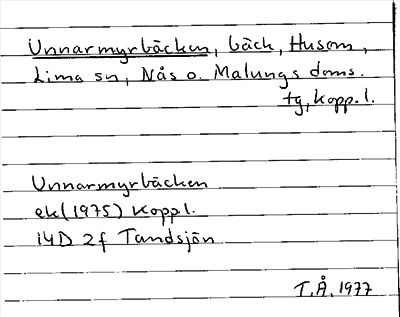 Unnarmyrbäcken, bäck, Husom,
Lima sn, Nås o. Malungs doms.
tg, Kopp.l.
Unnarmyrbäcken
ek (1975) Koppl.
14D 2f Tandsjön
T.Å. 1977